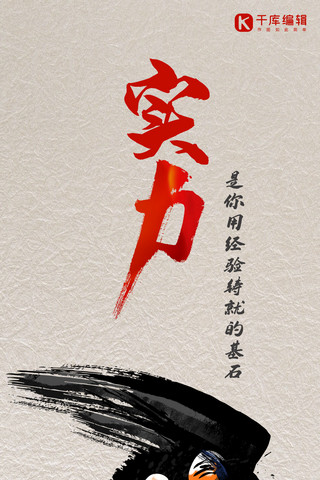 千库编辑
实力
是你用经验铸就的基石